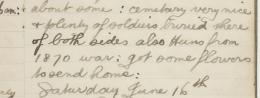 about some : cemetary very nice
& plenty of soldiers buried there
of both sides also Huns from
1870 war : got some flowers
to send home :
Saturday June 16th